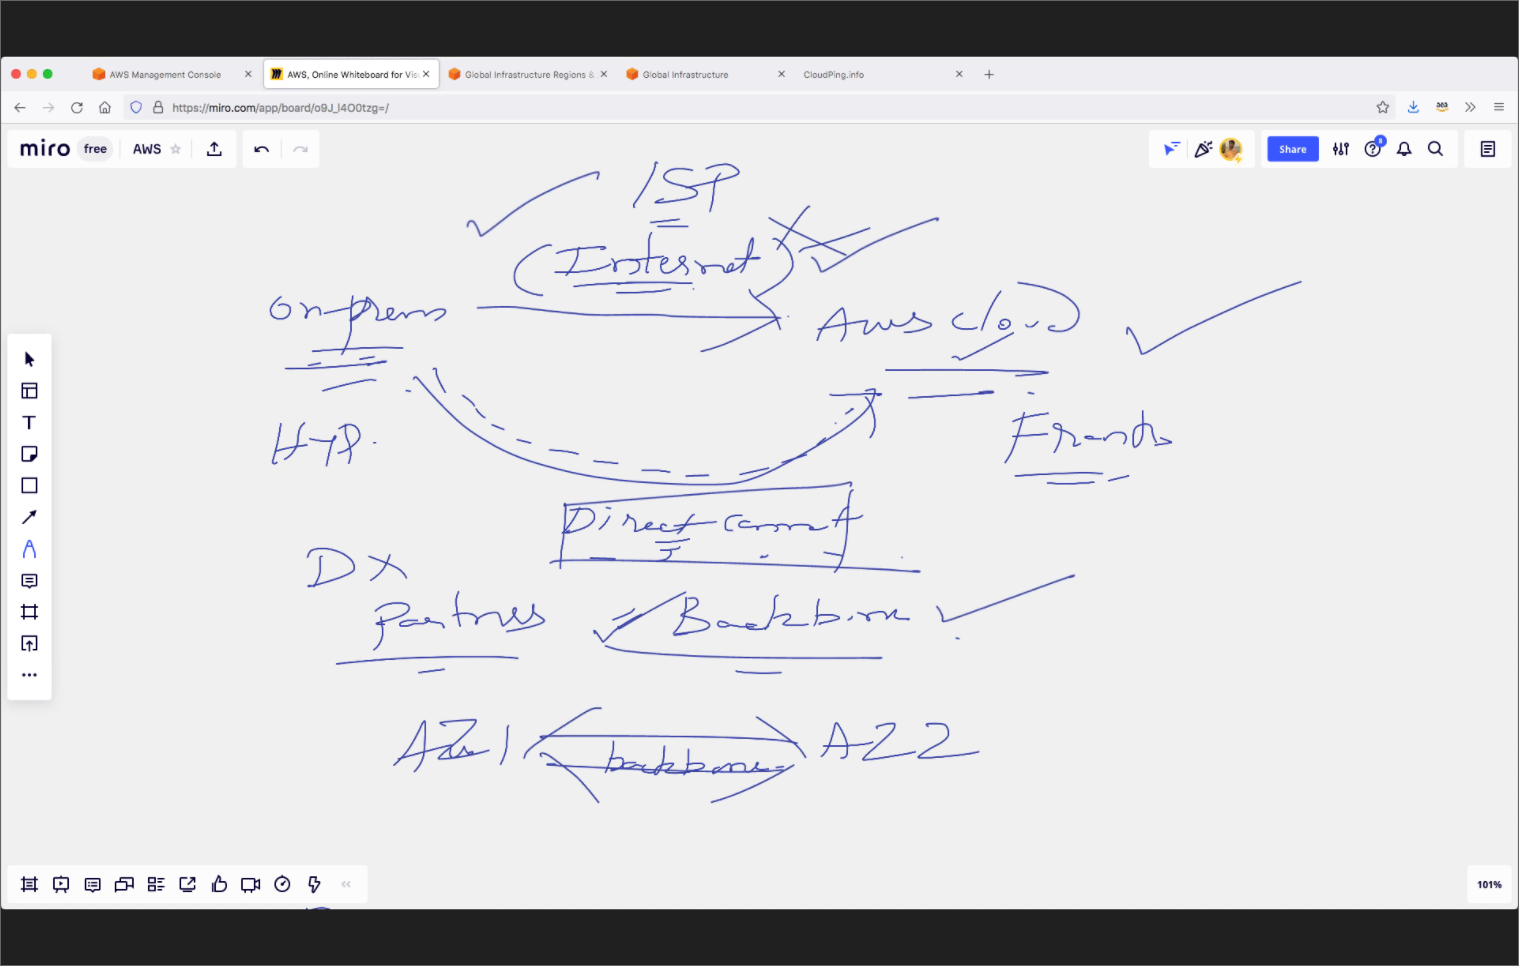 AWS Management Console
AWS, Online Whiteboard for Vis
Global Infrastructure Regions &
Global Infrastructure
CloudPing.info
https://miro.com/app/board/o9J_l4O0tzg=/
miro free AWS
Share
8
ISP
(Internet)
On-prem
AWS Cloud
HYP.
Direct Connect
DX
Partners
Backbone
AZ1
backbone
AZ2
101%